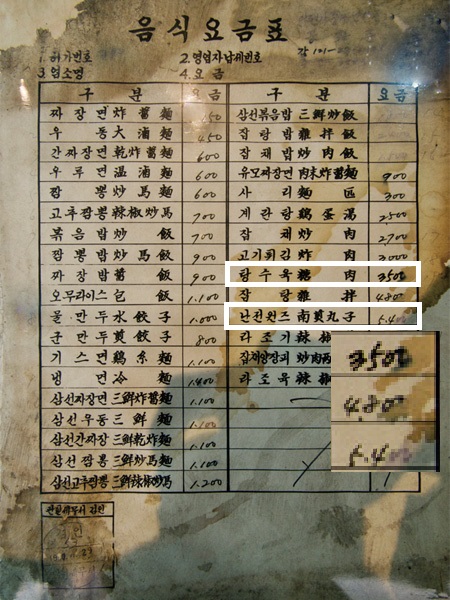 음식요금표
1. 허가번호 2. 영업자납세번호
3. 업소명 4. 요금
구분 요금
짜장면 炸醬麵
우동 大滷麵 450
간짜장면 乾炸醬麵 600
우류면 溫滷麵 600
짬뽕 炒馬麵 600
고추짬뽕 辣椒炒馬 700
볶음밥 炒飯 700
짬뽕밥 炒馬飯 900
짜장밥 醬飯 900
오무라이스 包飯 1.100
물만두 水餃子 1.000
군만두 煎餃子 800
기스면 鷄糸麵 1.100
냉면 冷麵
삼선짜장면 三鮮炸醬 1.100
삼선우동 三鮮麵 1.100
삼선간짜장 三鮮乾炸 1.100
삼선짬뽕 三鮮炒馬 1.100
삼선고추짬뽕 三鮮辣椒炒馬 1.200
구분 요금
삼선볶음밥 三鮮炒飯
잡탕밥 雜拌飯
잡채밥 炒肉飯
유모짜장면 肉末炸醬 900
사리 麵 300
계란탕 鷄蛋湯 2500
잡채 炒肉 2700
고기튀김 炸肉 3000
탕수육 糖肉 3500
잡탕 雜拌 480
난젼완즈 南煎丸子 5.400
라조기 辣
잡채양장피 炒肉兩
라조육 辣
3500
4.80
5.400